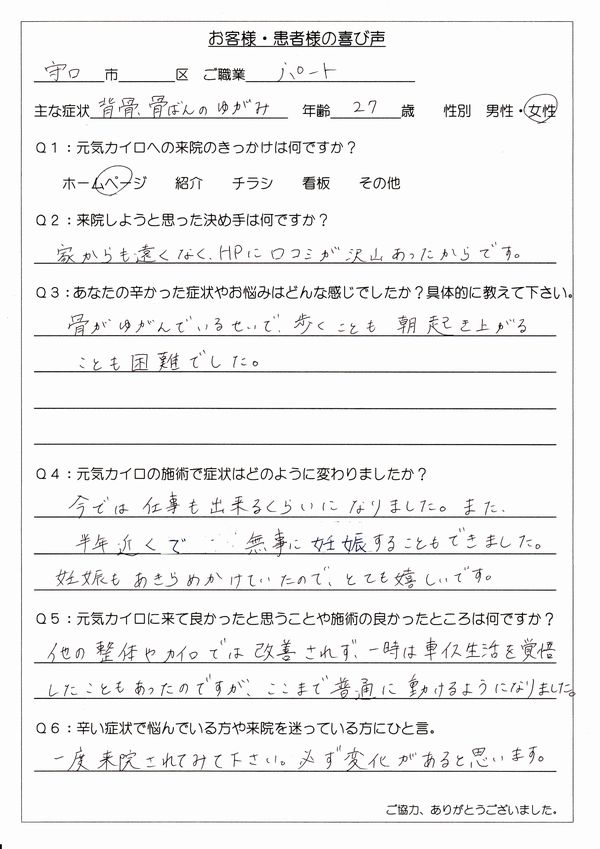 お客様・患者様の喜び声
守口 市 区 ご職業 パート
主な症状 背骨、骨ばんのゆがみ 年齢 27 歳 性別 男性・女性
Q1：元気カイロへの来院のきっかけは何ですか？
ホームページ 紹介 チラシ 看板 その他
Q2：来院しようと思った決め手は何ですか？
家からも遠くなく、HPに口コミが沢山あったからです。
Q3：あなたの辛かった症状やお悩みはどんな感じでしたか？具体的に教えて下さい。
骨がゆがんでいるせいで、歩くことも 朝起き上がる
ことも困難でした。
Q4：元気カイロの施術で症状はどのように変わりましたか？
今では仕事も出来るくらいになりました。また、
半年近くで 無事に妊娠することもできました。
妊娠もあきらめかけていたので、とても嬉しいです。
Q5：元気カイロに来て良かったと思うことや施術の良かったところは何ですか？
他の整体やカイロでは改善されず、一時は車イス生活を覚悟
したこともあったのですが、ここまで普通に動けるようになりました。
Q6：辛い症状で悩んでいる方や来院を迷っている方にひと言。
一度来院されてみて下さい。必ず変化があると思います。
ご協力、ありがとうございました。